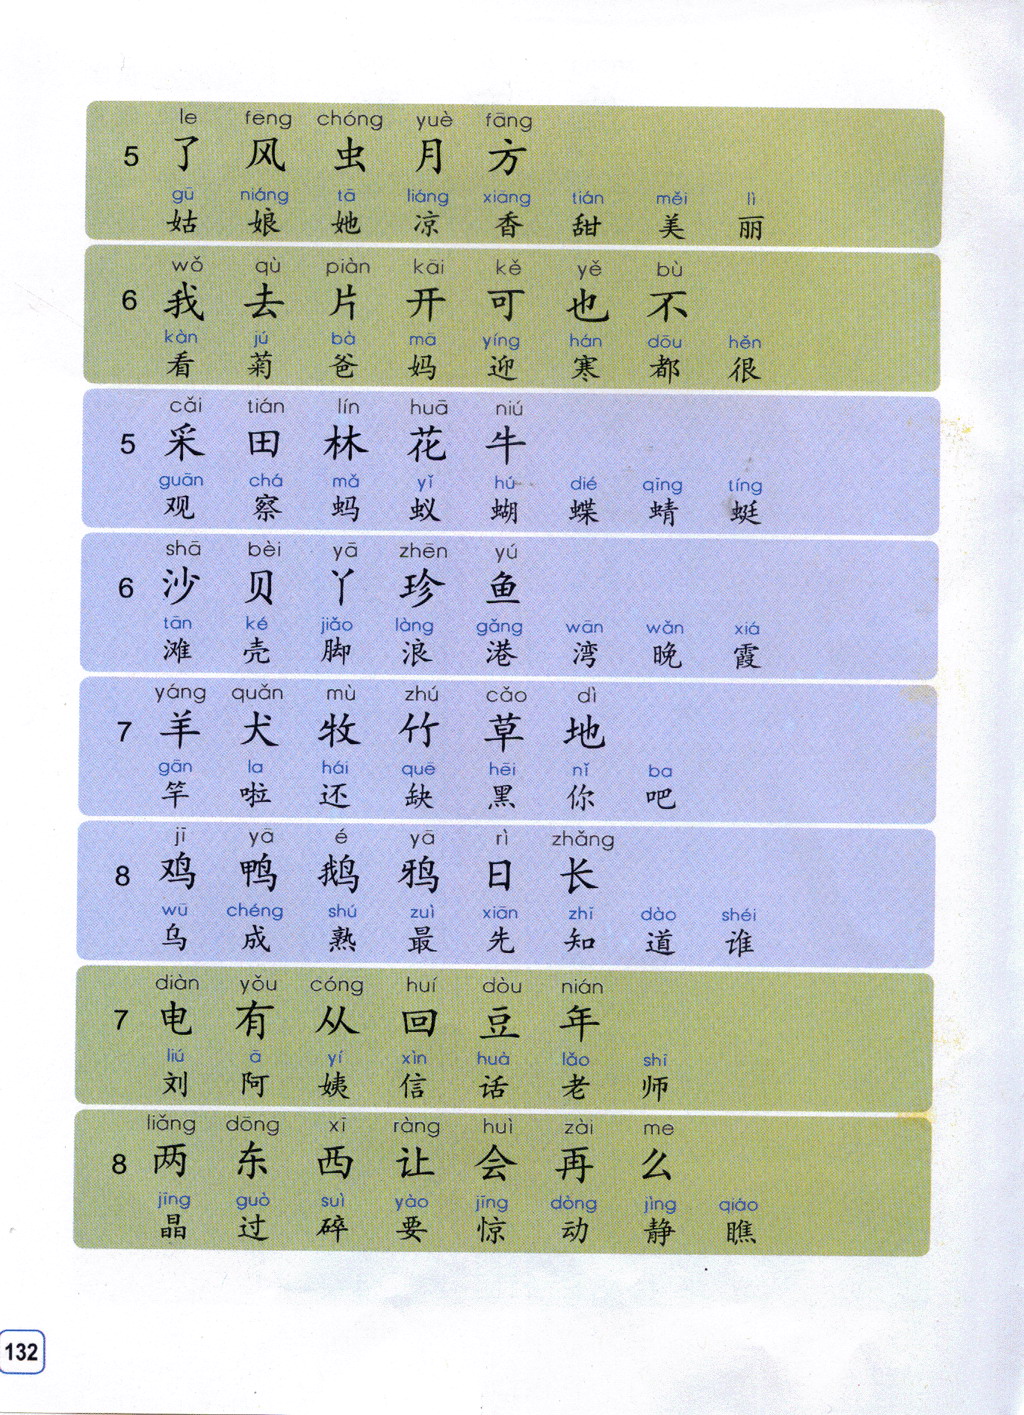 le fēng chóng yuè fāng
5 了 风 虫 月 方
gū niáng tā liáng xiāng tián měi lì
姑 娘 她 凉 香 甜 美 丽
wǒ qù piàn kāi kě yě bù
6 我 去 片 开 可 也 不
kàn jú bà mā yíng hán dōu hěn
看 菊 爸 妈 迎 寒 都 很
cǎi tián lín huā niú
5 采 田 林 花 牛
guān chá mǎ yǐ hú dié qīng tíng
观 察 蚂 蚁 蝴 蝶 蜻 蜓
shā bèi yā zhēn yú
6 沙 贝 丫 珍 鱼
tān ké jiǎo làng gǎng wān wǎn xiá
滩 壳 脚 浪 港 湾 晚 霞
yáng quǎn mù zhú cǎo dì
7 羊 犬 牧 竹 草 地
gān la hái quē hēi nǐ ba
竿 啦 还 缺 黑 你 吧
jī yā é yā rì zhǎng
8 鸡 鸭 鹅 鸦 日 长
wū chéng shú zuì xiān zhī dào shéi
乌 成 熟 最 先 知 道 谁
diàn yǒu cóng huí dòu nián
7 电 有 从 回 豆 年
liú ā yí xìn huà lǎo shī
刘 阿 姨 信 话 老 师
liǎng dōng xī ràng huì zài me
8 两 东 西 让 会 再 么
jīng guò suì yào jīng dòng jìng qiáo
晶 过 碎 要 惊 动 静 瞧
132